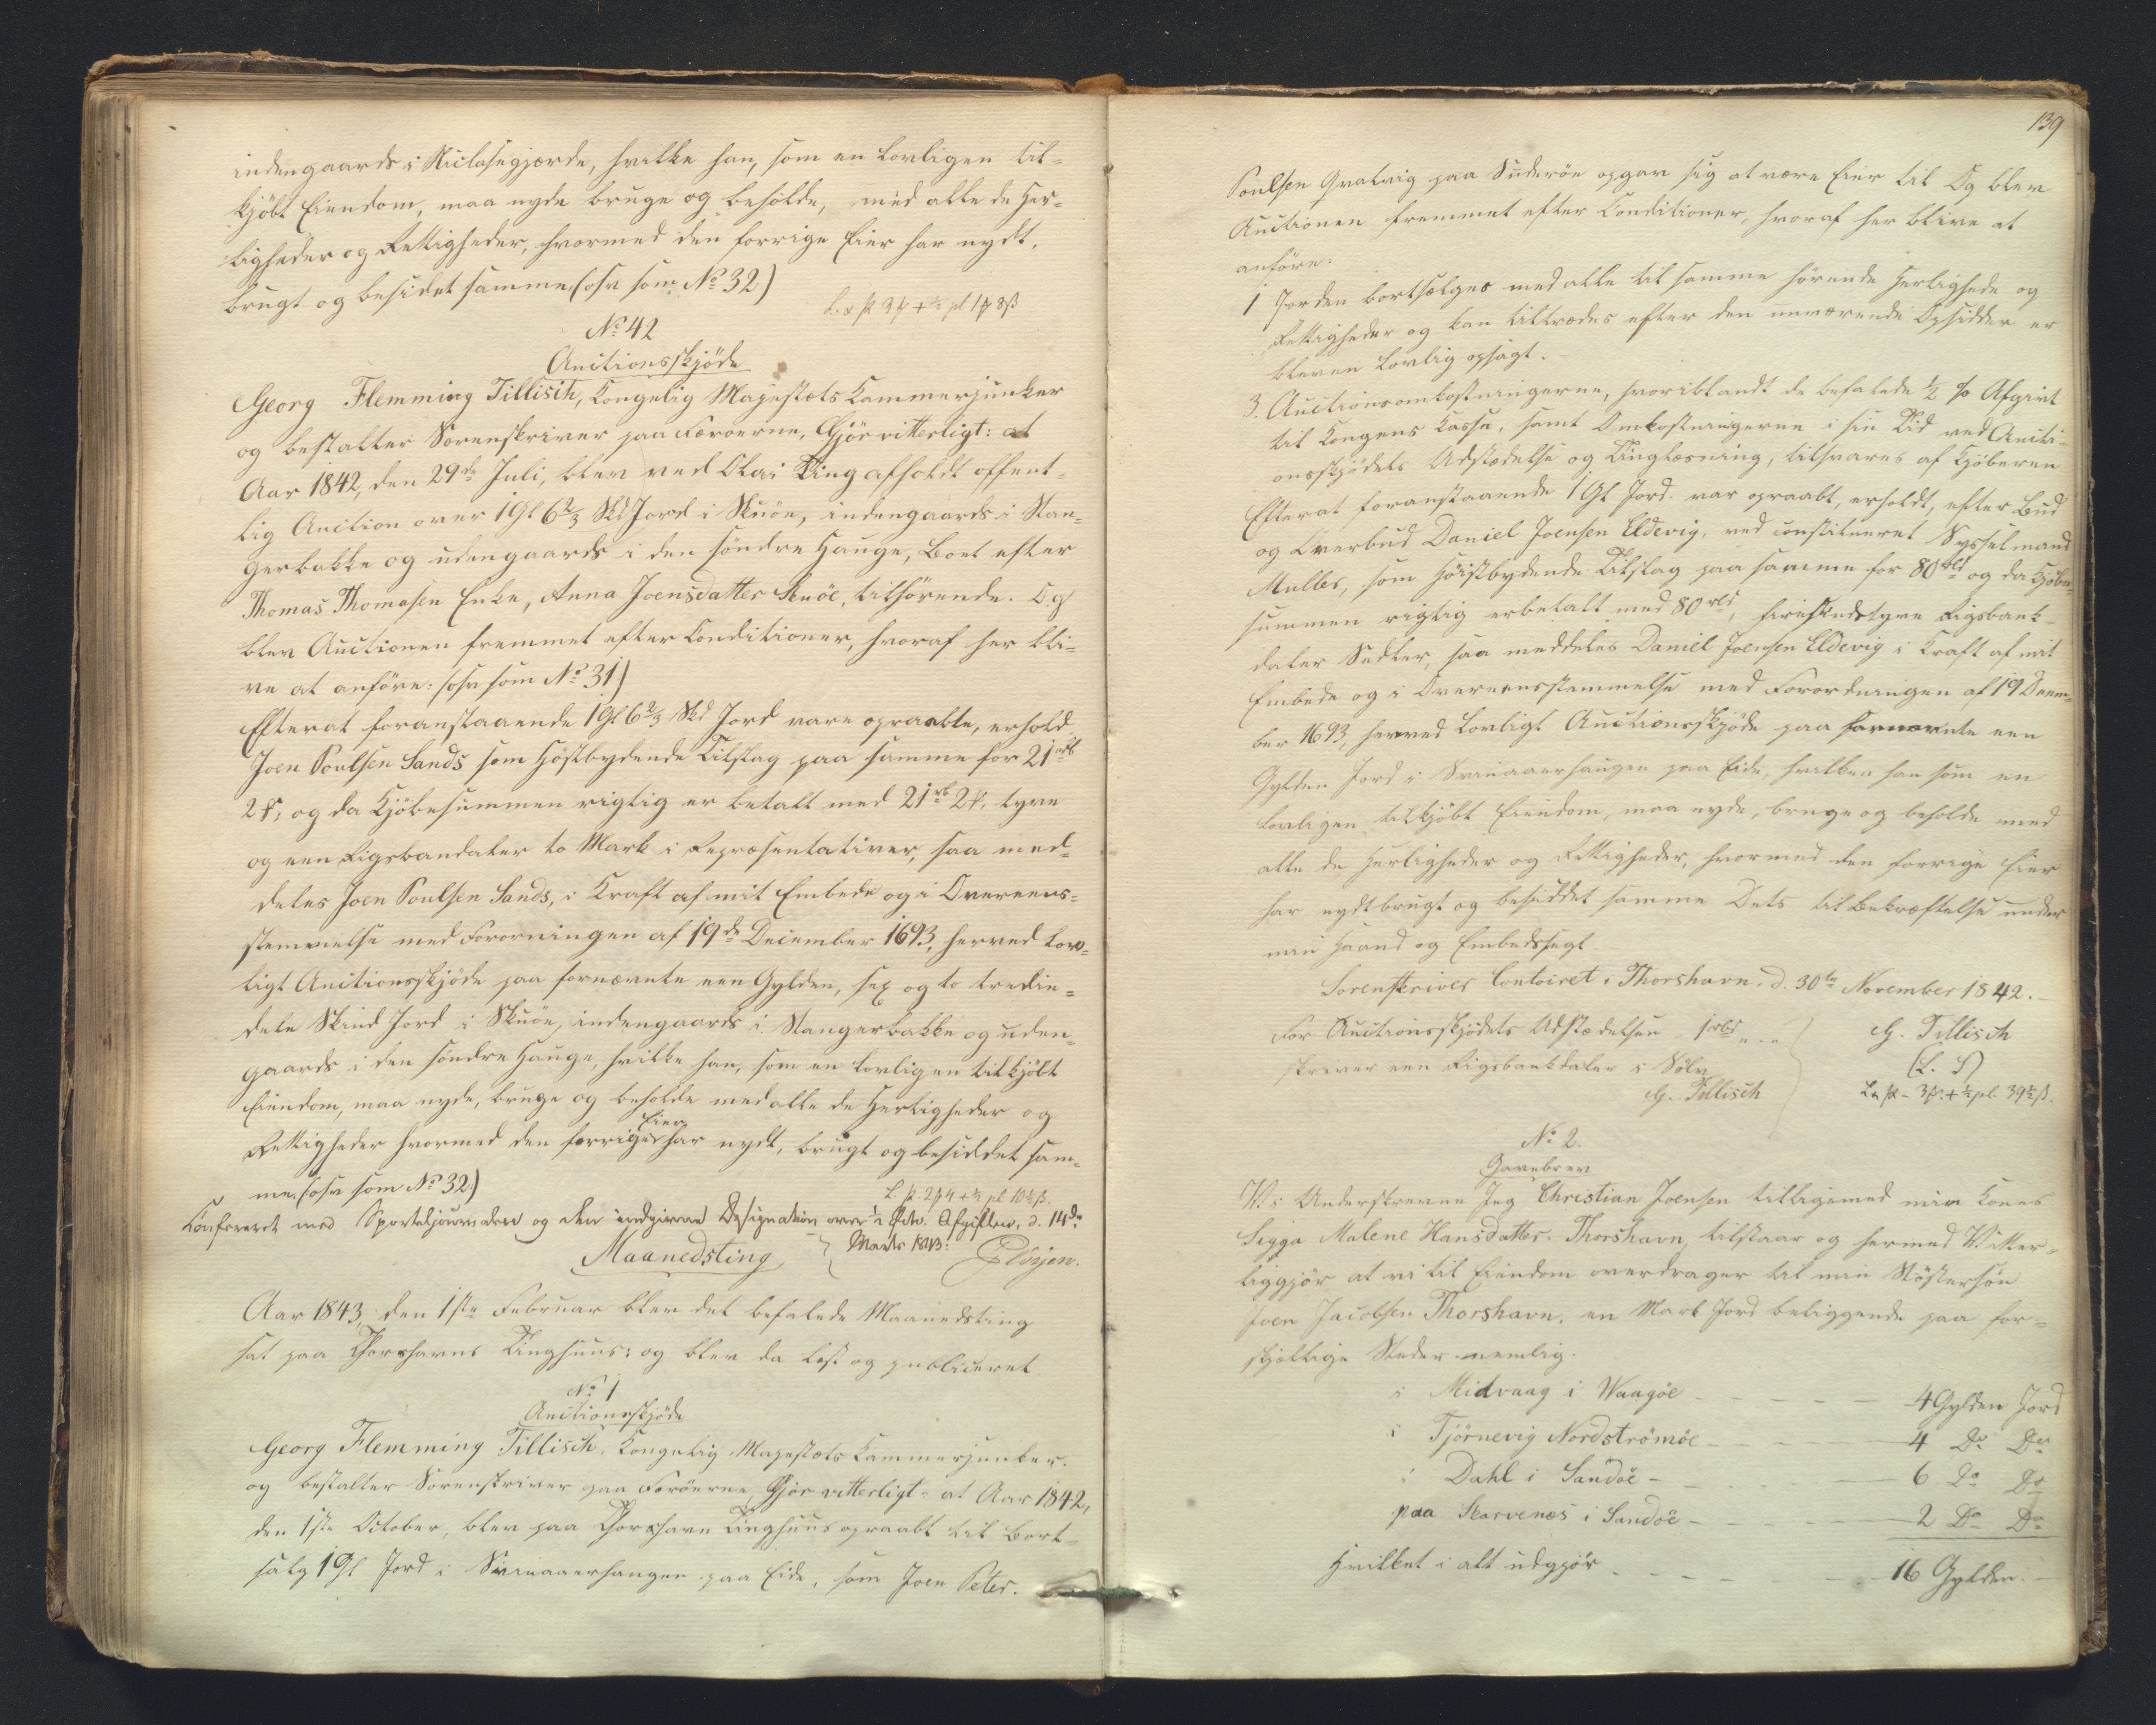 indengaards i Niclasegjærde, hvilke han, som en lovligen til-
kjöbt Eiendom, maa nyde bruge og beholde, med alle de Her-
ligheder og Rettigheder, hvormed den forrige Eier har nydt,
brugt og besidet samme (osv som No 32)
No 42
Auctionsskjöde
Georg Flemming Tillisch, Kongelig Majestæts Kammerjunker
og bestalter Sorenskriver paa Færoerne, Gjör vitterligt: at
Aar 1842, den 29de Juli, blev ved Olai Ting afholdt offent-
lig Auction over 1 Gl 6 2/3 Skd Jord i Skuöe, indengaards i Stan-
gerbakke og udengaards i den söndre Hauge, Boet efter
Thomas Thomasen Enke, Anna Joensdatter Skuöe, tilhörende. Og
blev Auctionen fremmet efter Conditioner, hvoraf her bli-
ve at anföre: (osv som No 31)
Efterat foranstaaende 1 Gl 6 2/3 Skd Jord vare opraabte, erhold
Joen Poulsen Sands som Höstbydende Tilslag paa samme for 21 rb
2 ₻, og da Kjöbesummen rigtig er betalt med 21 rb 2 ₻, tyve
og een Rigsbandaler to Mark i Repræsentativer, saa med-
deles Joen Poulsen Sands, i Kraft af mit Embede og i Overeens-
stemmelse med Fororningen af 19de December 1693, herved lov-
ligt Auctionsskjöde paa fornævnte een Gylden, sex og to tredie-
dele Skind Jord i Skuöe, indengaards i Stangerbakke og uden-
gaards i den söndre Hauge, hvilke han, som en lovligen tilkjöbt
Eiendom, maa nyde, bruge og beholde med alle de Herligheder og
Rettigheder hvormed den forrige Eier har nydt, brugt og besiddet sam-
me. (osv som No 32)
Confereret med Sporteljournalen og den indgivne Designation over 1/2 Afgiften, d. 14de
Marts 1843:
Maanedsting
Aar 1843, den 1ste Februar blev det befalede Maanedsting
sat paa Thorshavns Tinghuus: og blev da læst og publiceret
No 1
Auctionsskjöde
Georg Flemming Tillisch, Kongelig Majestæts Kammerjunker
og bestalter Sorenskriver paa Færöerne Gjör vitterligt: at Aar 1842,
den 1ste October, blev paa Thorshavn Tinghuus opraabt til Bort-
salg 1 Gl Jord i Svinaaerhaugen paa Eide, som Joen Peter
139
Poulsen Qvalvig paa Suderöe opgav sig at være Eier til Og blev
Auctionen fremmet efter Conditioner, hvoraf her blive at
anföre:
1 Jorden bortsælges med alle til samme hörende Herlighede og
Rettigheder og kan tiltrædes efter den nuværende Opsidder er
bleven lovlig opsagt.
3. Auctionsomkostningerne, hvoriblandt de befalede 1/2 % Afgivt
til Kongens Kasse, samt Omkostningerne i sin Tid ved Aucti-
onsskjödets Udstædelse og Tinglæsning, tilsvares af Kjöberen
Efterat foranstaaende 1 Gl Jord var opraabt, erholdt, efter Bud
og Overbud Daniel Joensen Eldevig, ved constitueret Sysselmand
Müller, som Höistbydende Tilslag paa samme for 80 rbd og da Kjöbe-
summen rigtig erbetalt med 80 rbd, firesindstyve Rigsbank-
daler Sedler, saa meddeles Daniel Joensen Eldevig i Kraft af mit
Embede og i Overeensstemmelse med Forordningen af 19 Decem-
ber 1693, herved lovligt Auctionsskjöde paa fornævnte een
Gylden Jord i Svinaaerhaugen paa Eide, hvilken han som en
lovligen tilkjöbt Eiendom, maa nyde, bruge og beholde med
alle de Herligheder og Rettigheder, hvormed den forrige Eier
har nydt brugt og besiddet samme Dets til Bekræftelse under
min Haand og Embedsegl.
Sorenskriver Contoiret i Thorshavn, d. 30te November 1842.
For Auctionsskjödets Udstædelsen 1 rbd
skriver een Rigsbankdaler i Sölv
G. Tillisch
G. Tillisch
(L. S)
No 2.
Gavebrev
Vi Underskrevne Jeg Christian Joensen tilligemed min Kones
Sigga Malene Hansdatter Thorshavn tilstaar og hermed Vitter-
liggjör at vi til Eiendom overdrager til min Söstersön
Joen Jacobsen Thorshavn, en Mark Jord beliggende paa for-
skjellige Steder nemlig.
i Midvaag i Waagöe 4 Gylden Jord
i Tjörnevig Nordströmöe 4 Do Do
i Dahl i Sandöe 6 Do Do
paa Skarvenæs i Sandöe 2 Do Do
Hvilket i alt udgjör 16 Gylden.